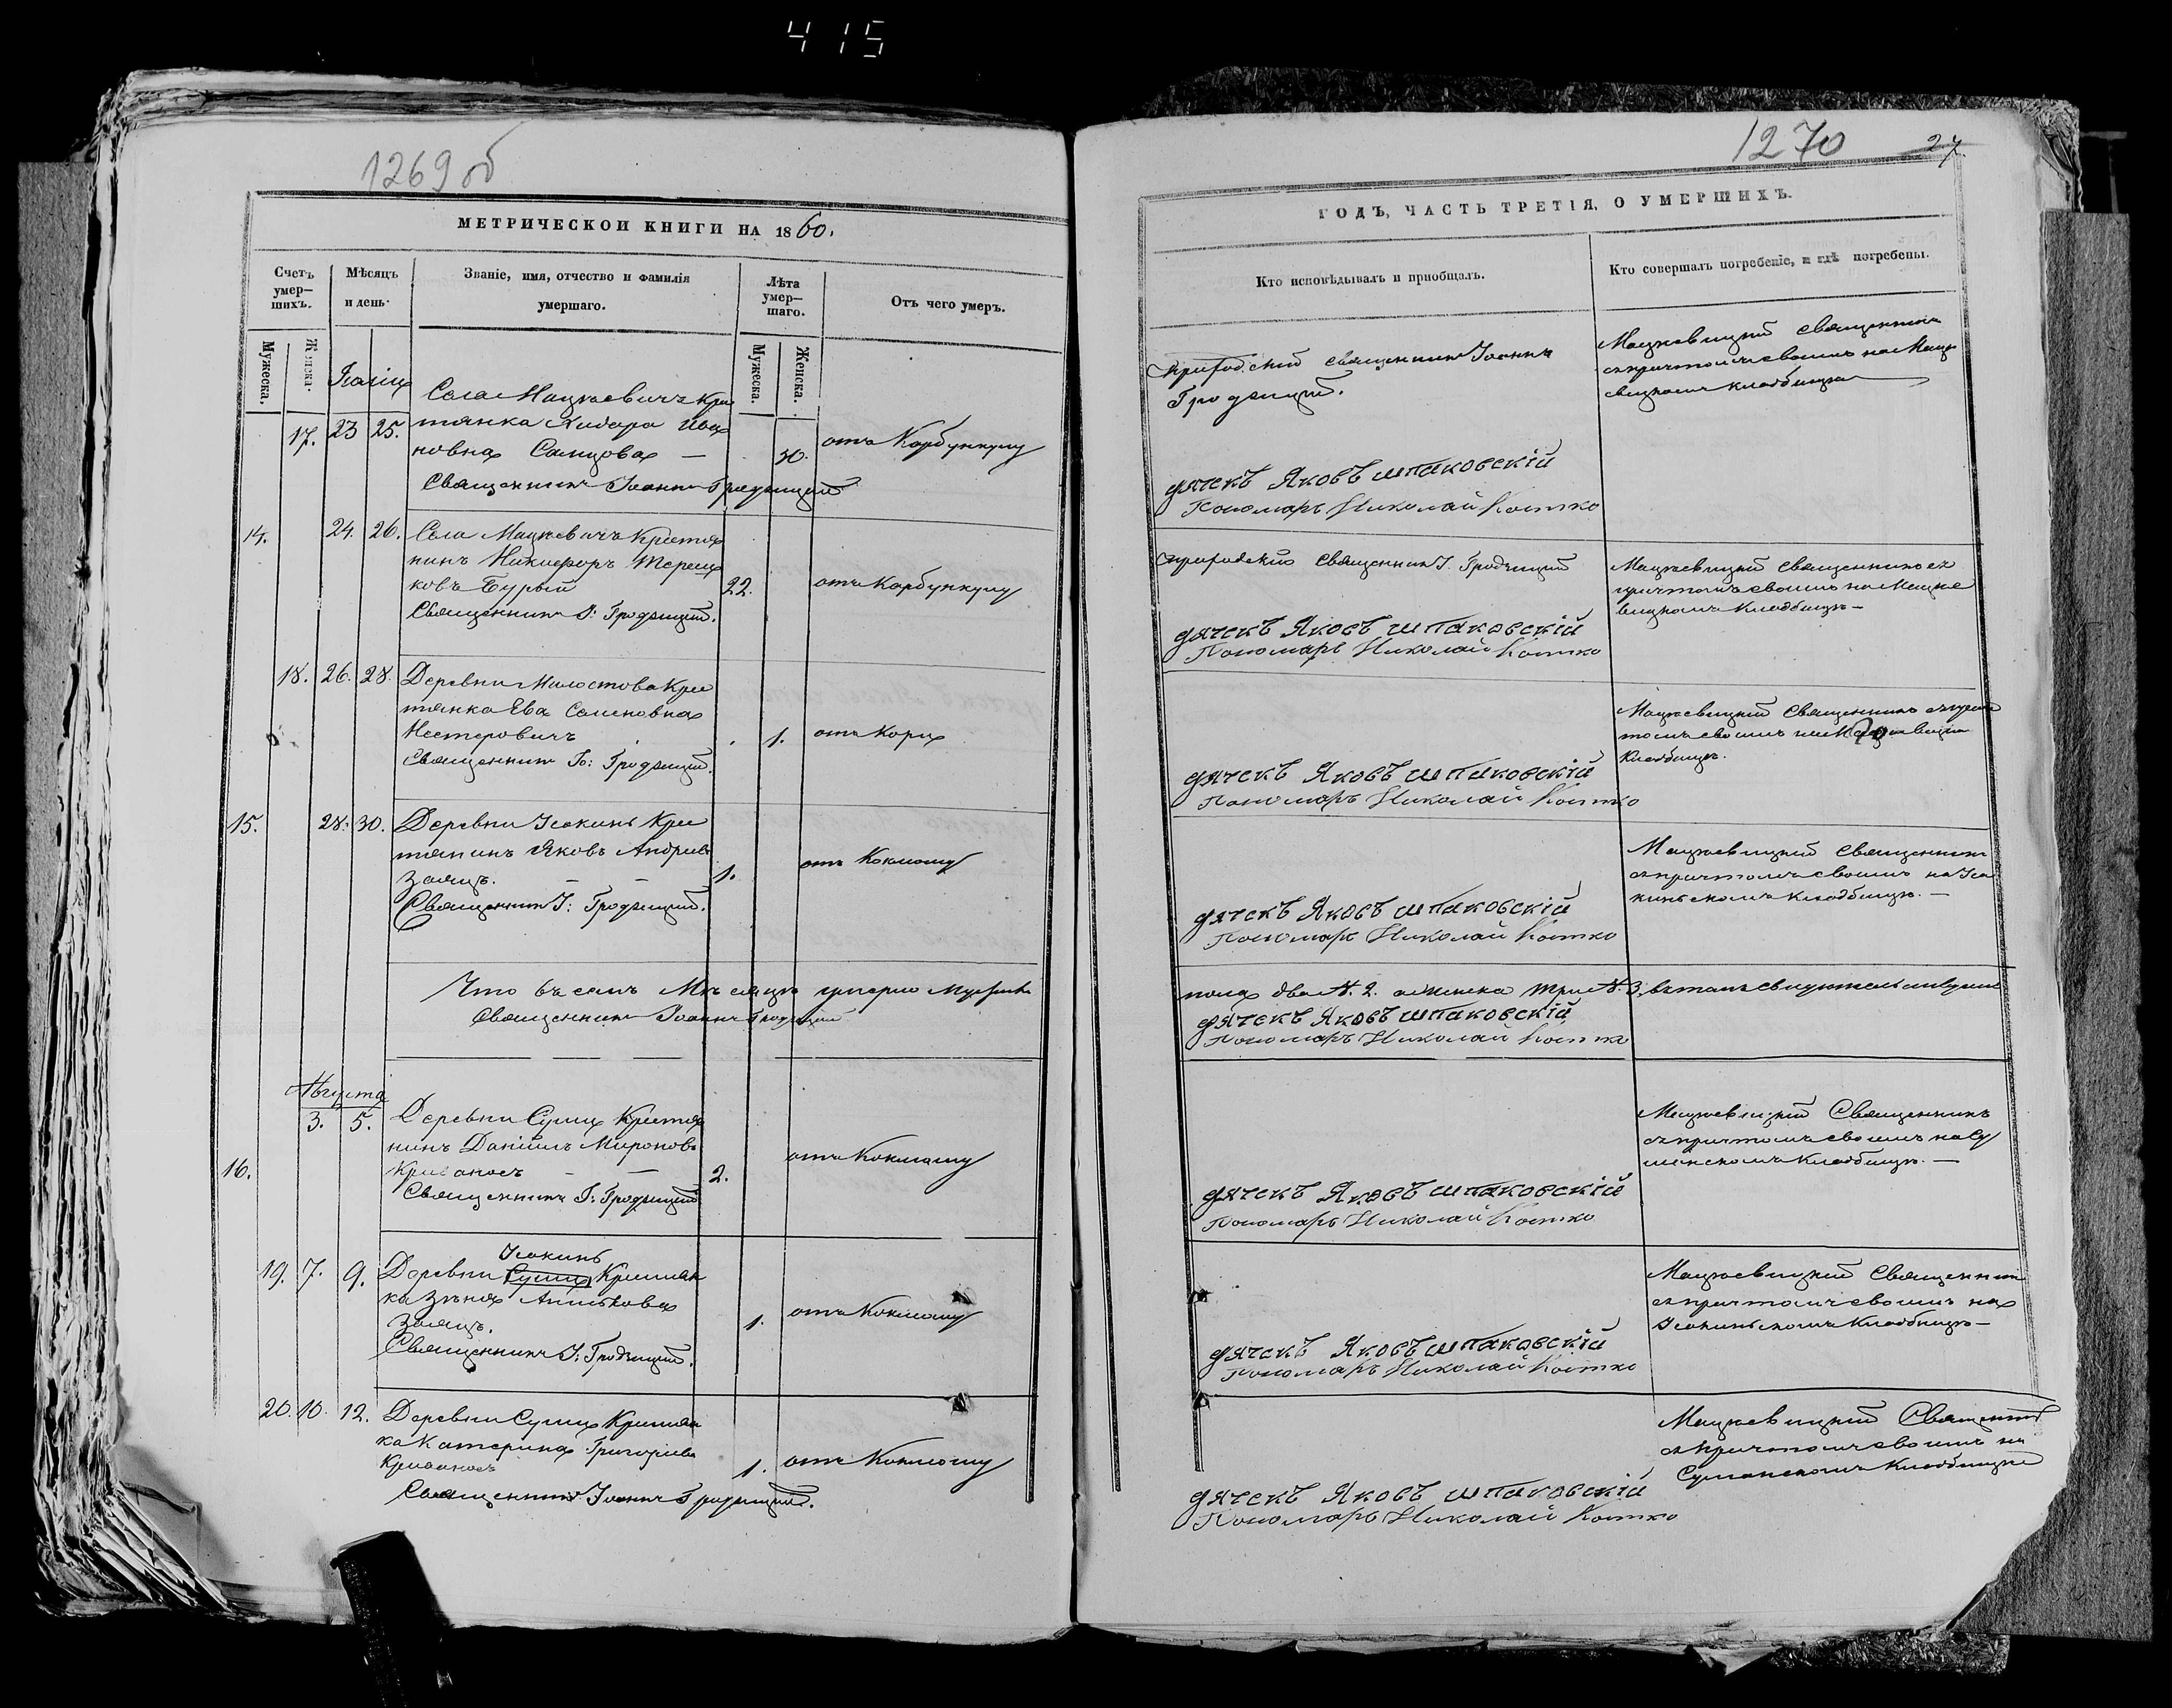 415
1269 об
МЕТРИЧЕСКОЙ КНИГИ НА 1860.
Счетъ умер-шихъ.
Мѣсяцъ и день.
Званіе, имя, отчество и фамилія умершаго.
Лѣта умер-шаго.
Отъ чего умеръ.
Мужеска.
Женска.
Мужеска.
Женска.
Села Мацкевичъ Кре
17. 23 25.
тянка
Ива
новна
30.
отъ Карбункулу
Священникъ Іоаннъ Гродзицкій
14. 24. 26. Села Мацкевичъ Крестья
нинъ Никифоръ Терен
ковъ Бурый
22.
отъ Карбункулу
Священникъ І: Гродзицкій.
18. 26. 28. Деревни Милостова Крес
тянка Ева Семеновна
Нестеровичъ
1.
отъ Кори
Священникъ Іо: Гродзицкій.
15. 28. 30. Деревни Кре
тянинъ Яковъ Андреевъ
Заяцъ.
1.
отъ Коклюшу
Священникъ І: Гродзицкій.
Что въ семъ Мѣсяцѣ умерло Мужеска
Священникъ Іоаннъ Гродзицкій
Августа
3. 5. Деревни Крестья
нинъ Даніилъ Мироновъ
16.
Кривоносъ
2.
отъ Коклюшу
Священникъ І: Гродзицкій
19. 7. 9. Деревни Крестьян
ка
Заяцъ.
1.
отъ Коклюшу
Священникъ І: Гродзицкій.
20. 10. 12. Деревни Крестьян
ка Катерина Григорьева
Кривоносъ
1.
отъ Коклюшу
Священникъ Іоаннъ Гродзицкій.
1270
27
ГОДЪ, ЧАСТЬ ТРЕТІЯ, О УМЕРШИХЪ.
Кто исповѣдывалъ и пріобщалъ.
Кто совершалъ погребеніе, и гдѣ погребены.
Приходскій священникъ Іоаннъ
Гродзицкій.
Мацкевицкій священникъ
съ причтомъ своимъ на Мацке
вицкомъ кладбищѣ
дячекъ Яковъ шпаковскій
Пономарь Николай Костко
Приходскій священникъ І. Гродзицкій
Мацкевицкій священникъ съ
причтомъ своимъ на Мацке
вицкомъ Кладбищѣ —
дячекъ Яковъ шпаковскій
Пономарь Николай Костко
Мацкевицкій Священникъ съ прич
томъ своимъ на
Кладбищѣ.
дячекъ Яковъ шпаковскій
Пономаръ Николай Костко
Мацкевицкій священникъ
съ причтомъ своимъ на
кладбищѣ. —
дячекъ Яковъ шпаковскій
Пономарь Николай Костко
пола два №. 2. а женска три №. 3, въ томъ свидѣтельствуемъ
дячекъ Яковъ шпаковскій
Пономаръ Николай Костко
Мацкевицкій Священникъ
съ причтомъ своимъ на
Кладбищѣ. —
дячекъ Яковъ шпаковскій
Пономарь Николай Костко
Мацкевицкій Священникъ
съ причтомъ своимъ на
Кладбищѣ —
дячекъ Яковъ шпаковскій
Пономаръ Николай Костко
Мацкевицкій Священникъ
съ причтомъ своимъ на
Кладбищѣ
дячекъ Яковъ шпаковскій
Пономарь Николай Костко